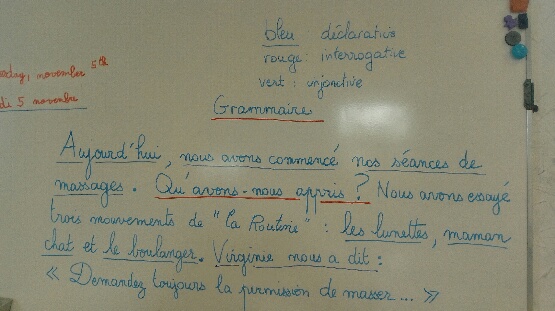 bleu déclarative
rouge : interrogative
vert : injonctive
november 5th
5 novembre
Grammaire
Aujourd'hui, nous avons commencé nos séances de
massages. Qu'avons-nous appris ? Nous avons essayé
trois mouvements de "La Routine" : les lunettes, maman
chat et le boulanger. Virginie nous a dit :
« Demandez toujours la permission de masser ... »